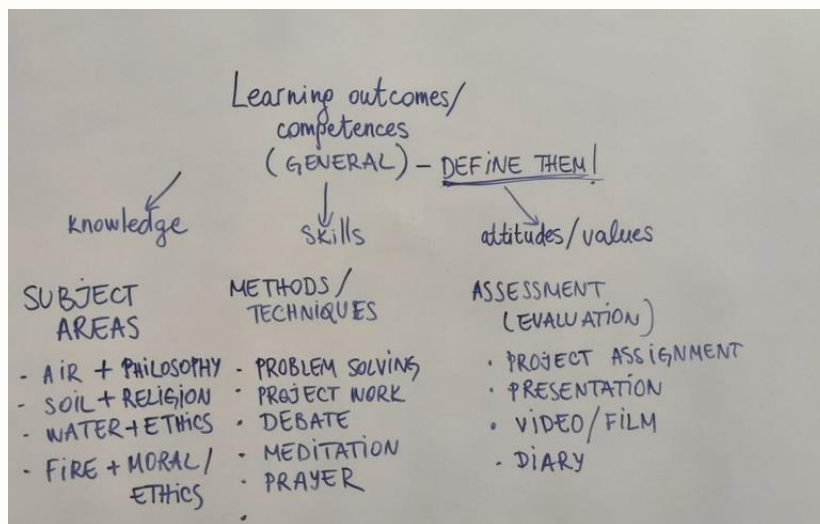 Learning outcomes/
competences
(GENERAL) - DEFINE THEM!
knowledge
skills
attitudes/values
SUBJECT
AREAS
- AIR + PHILOSOPHY
- SOIL + RELIGION
- WATER + ETHICS
- FIRE + MORAL/
ETHICS
METHODS/
TECHNIQUES
- PROBLEM SOLVING
• PROJECT WORK
• DEBATE
• MEDITATION
• PRAYER
•
ASSESSMENT
(EVALUATION)
• PROJECT ASSIGNMENT
• PRESENTATION
• VIDEO/FILM
• DIARY